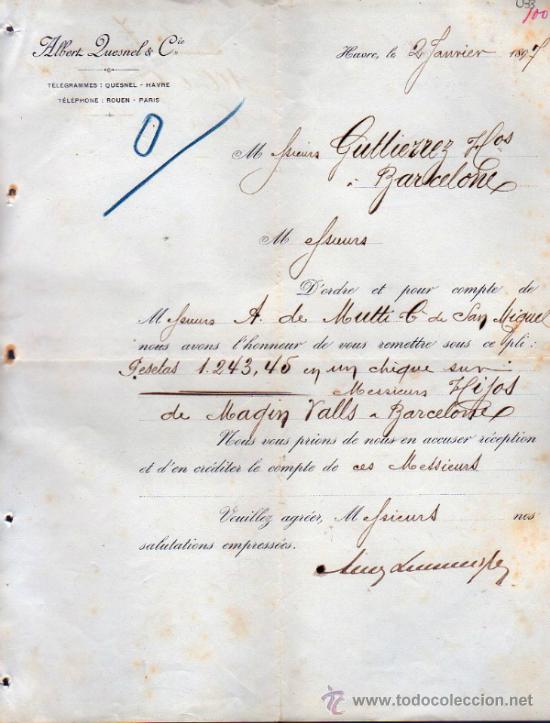 100
Albert Quesnel & Cie
TÉLÉGRAMMES : QUESNEL - HAVRE
TÉLÉPHONE : ROUEN - PARIS
Havre, le 2 Janvier 1897
Messieurs Gutlierrez Hos
à Barcelone
Messieurs
D'ordre et pour compte de
Messieurs A. de Mutti-C de San Miguel
nous avons l'honneur de vous remettre sous ce pli :
Pesetas 1.243,45 en un chèque sur
Messieurs Hijos
de Magin Valls à Barcelone
Nous vous prions de nous en accuser réception
et d'en créditer le compte de ces Messieurs
Veuillez agréer, Messieurs nos
salutations empressées.
todocoleccion
www.todocoleccion.net